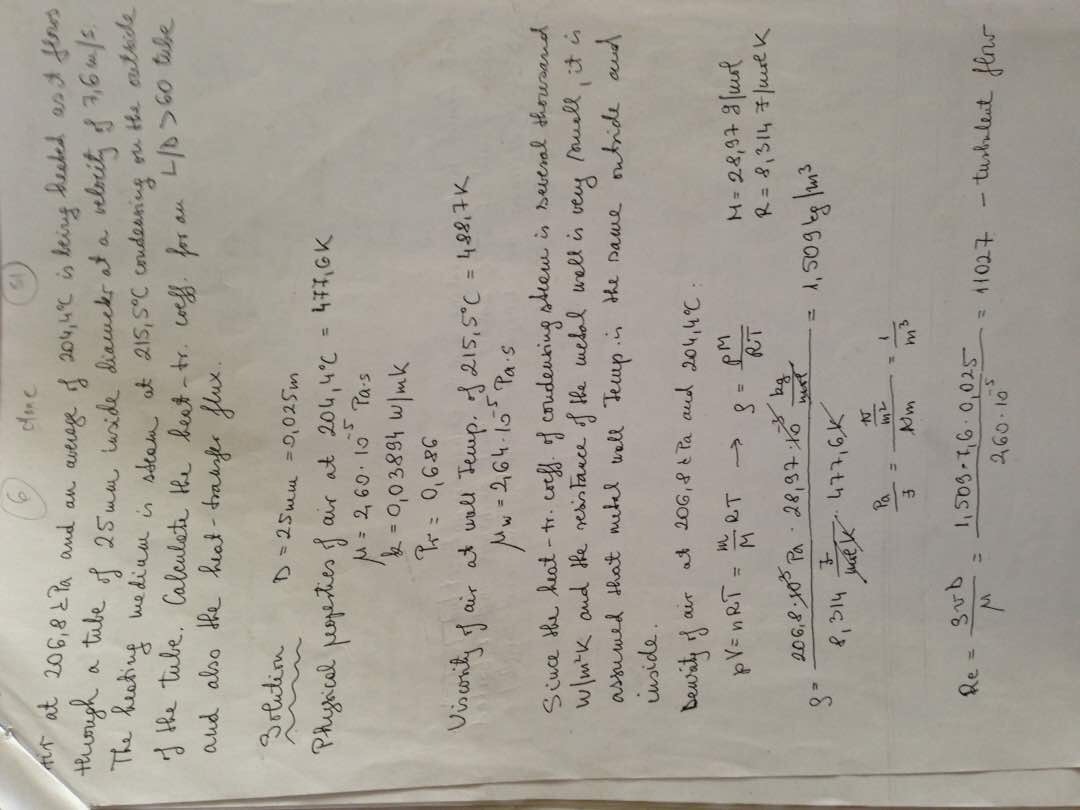 6 done 51
Air at 206,8 kPa and an average of 204,4°C is being heated as it flows
through a tube of 25 mm inside diameter at a velocity of 7,6 m/s.
The heating medium is steam at 215,5°C condensing on the outside
of the tube. Calculate the heat-tr. coeff. for an L/D > 60 tube
and also the heat-transfer flux.
Solution D = 25mm = 0,025m
Physical properties of air at 204,4°C = 477,6 K
μ = 2,60·10⁻⁵ Pa·s
k = 0,03894 W/mK
Pr = 0,686
Viscosity of air at wall Temp. of 215,5°C = 488,7 K
μw = 2,64·10⁻⁵ Pa·s
Since the heat-tr. coeff. of condensing steam is several thousand
W/m²K and the resistance of the metal wall is very small, it is
assumed that metal wall Temp. is the same outside and
inside.
Density of air at 206,8 kPa and 204,4°C:
pV = nRT = m/M RT → ρ = pM/RT M = 28,97 g/mol
R = 8,314 J/molK
ρ = 206,8·10³ Pa · 28,97·10⁻³ kg/mol / 8,314 J/molK · 477,6 K = 1,509 kg/m³
Pa/J = N/m² / Nm = 1/m³
Re = ρvD/μ = 1,509·7,6·0,025 / 2,60·10⁻⁵ = 11027 - turbulent flow